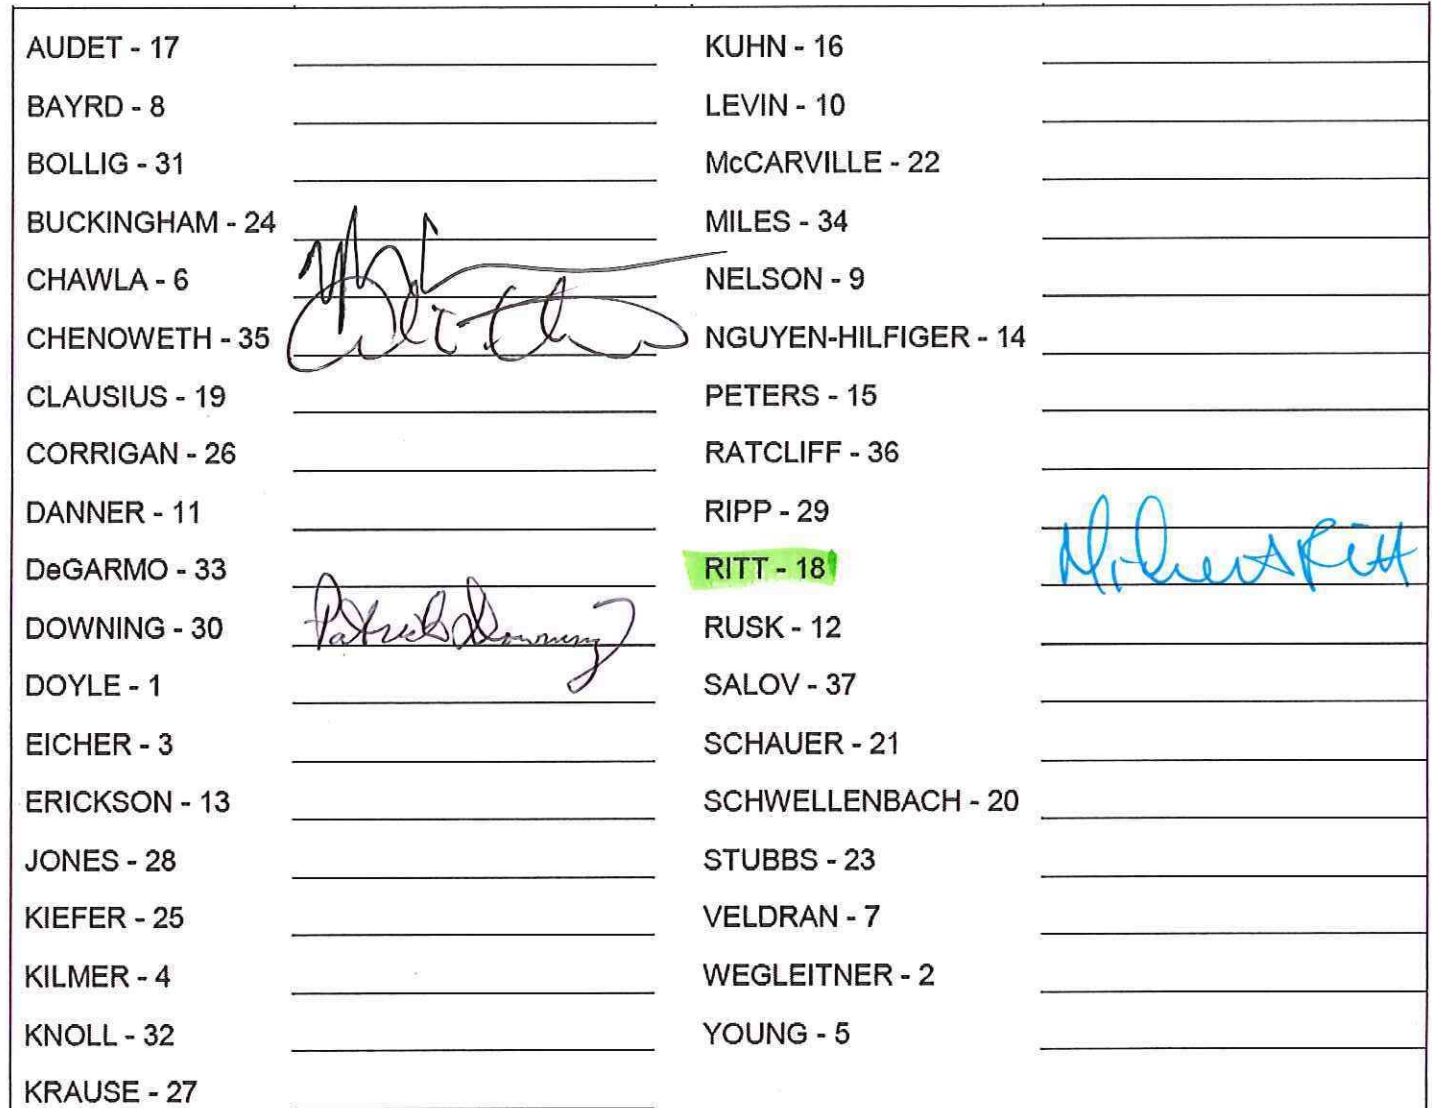 AUDET - 17
BAYRD - 8
BOLLIG - 31
BUCKINGHAM - 24
CHAWLA - 6
CHENOWETH - 35
CLAUSIUS - 19
CORRIGAN - 26
DANNER - 11
DeGARMO - 33
DOWNING - 30 Patrick Downing
DOYLE - 1
EICHER - 3
ERICKSON - 13
JONES - 28
KIEFER - 25
KILMER - 4
KNOLL - 32
KRAUSE - 27
KUHN - 16
LEVIN - 10
McCARVILLE - 22
MILES - 34
NELSON - 9
NGUYEN-HILFIGER - 14
PETERS - 15
RATCLIFF - 36
RIPP - 29
RITT - 18 Ritt
RUSK - 12
SALOV - 37
SCHAUER - 21
SCHWELLENBACH - 20
STUBBS - 23
VELDRAN - 7
WEGLEITNER - 2
YOUNG - 5